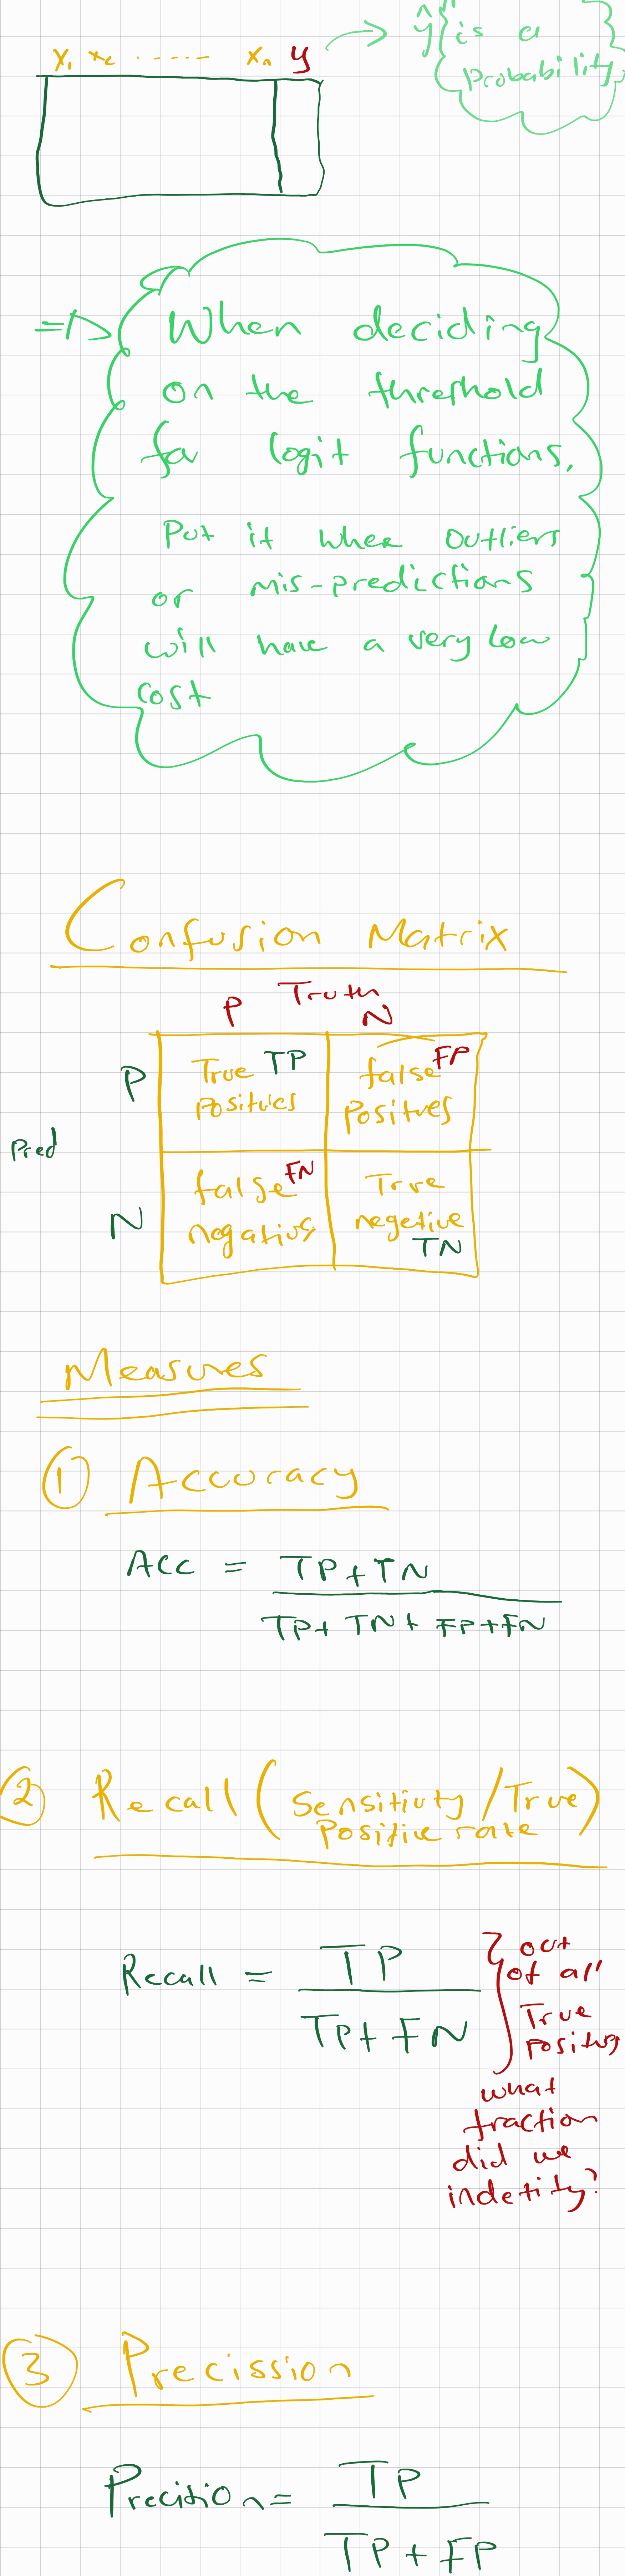 x₁ x₂ ...... xₙ y → ŷ is a
probability
=> When deciding
on the threshold
for logit functions,
Put it where outliers
or mis-predictions
will have a very low
cost
Confusion Matrix
Truth
P N
P True TP false FP
Positives Positves
Pred
N false FN True
negative
TN
Measures
① Accuracy
Acc = TP+TN
TP+ TN+ FP+FN
② Recall (Sensitivty / True
Positive rate)
Recall = TP
TP+ FN
} out
of all
True
what
fraction
did we
indetity?
③ Precission
Precition = TP
TP + FP